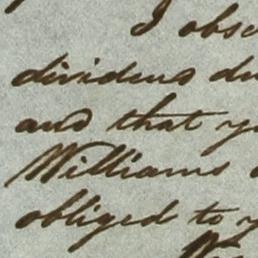 I obse
dividend du
and that y
Williams
obliged to y